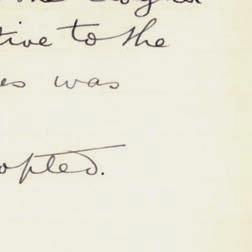 tive to the
es was
opted.